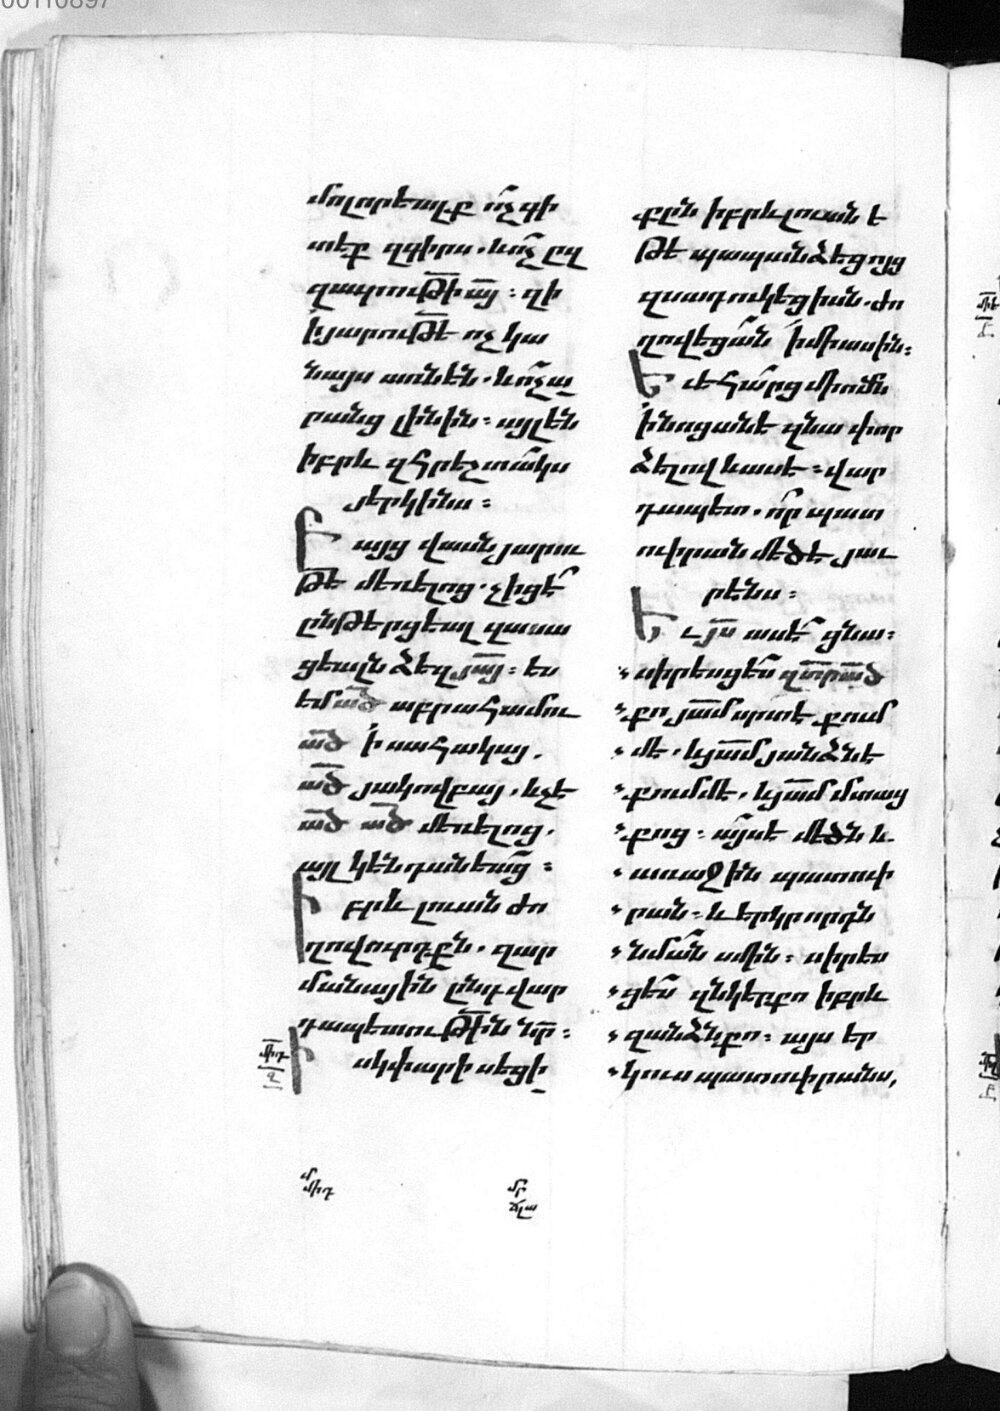 00110897
մոլորեալք ո՛չ գի
տեք զգիրս. և ո՛չ ըզ
զաւրութի ա՟յ։ զի
ի յարութե՟ ոչ կա
նայս առնեն. և ո՛չ ա
րանց լինին։ այլ են
իբրև զհրեշտակս
յերկինս։
Ե այց վասն յարու
թե՟ մեռելոց. չիցէ՛
ընթերցեալ զասա
ցեալն ձեզ յա՟յ։ ես
եմ ա՟ծ աբրահամու
ա՟ծ ի սահակայ.
ա՟ծ յակովբայ. և չէ
ա՟ծ ա՟ծ մեռելոց.
այլ կենդանեա՛ց։
Ի բրև լուան ժո
ղովուրդքն. զար
մանային ընդ վար
դապետութի՟ն նր՟։
Ի սկ փարիսեցի
քըն իբրև լուան է
թէ պապանձեցոյց
զսադուկեցիսն. ժո
ղովեցան ի միասին։
Ե ւ եհարց մի ոմն
ի նոցանէ զնա փոր
ձելով և ասէ։ վար
դապետ. ո՛ր պատ
ուիրան մեծ է յաւ
րէնս։
Ե ւ յ՟ս ասէ՛ ցնա։
սիրեսցես զտ՟ր ա՟ծ
քո յա՟մ սրտէ քում
մէ. և յա՟մ յանձնէ
քումմէ. և յա՟մ մտաց
քոց։ ա՛յս է մեծն և
առաջին պատուի
րան։ և երկրորդն
նման սմին։ սիրես
ցես զնկեր քո իբրև
զանձն քո։ այս եր
կուս պատուիրանս,
միդ
զ
մ
միդ
մր
ճլա